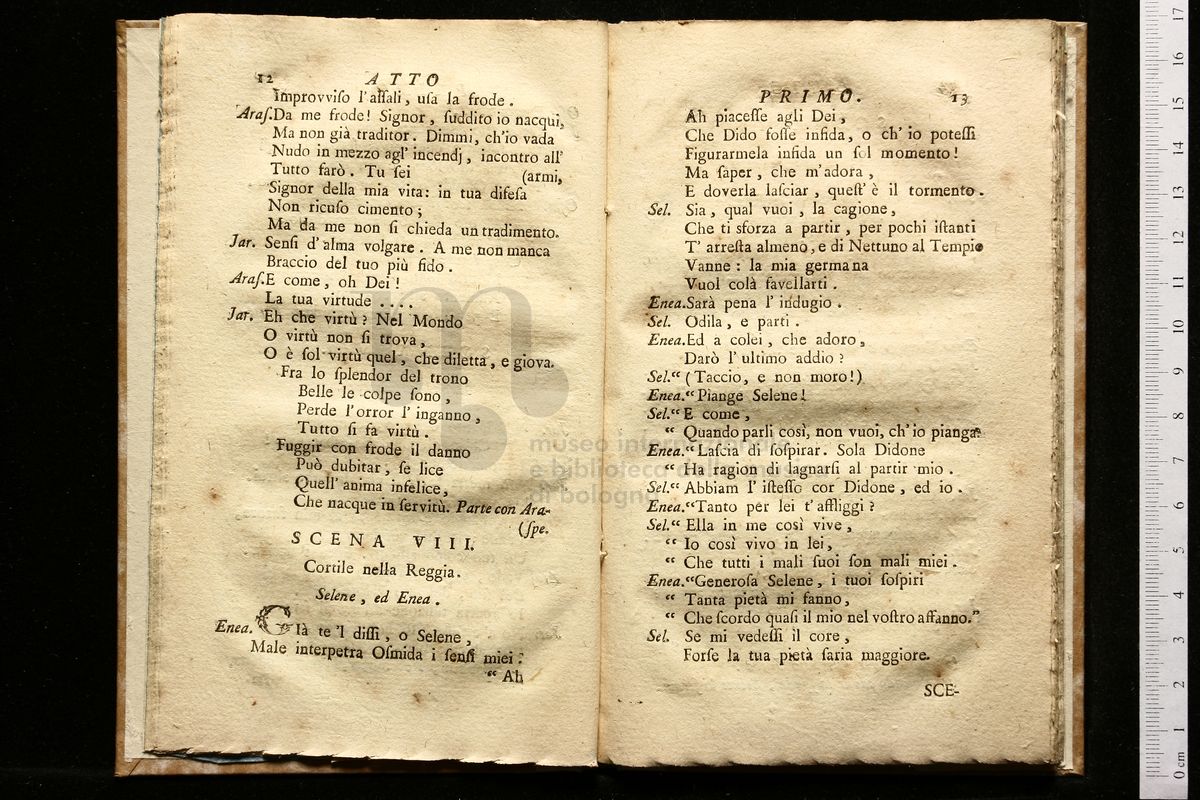 12 ATTO
Improvviſo l'aſſali, uſa la frode.
Araſ. Da me frode! Signor, ſuddito io nacqui,
Ma non già traditor. Dimmi, ch'io vada
Nudo in mezzo agl' incendj, incontro all'
Tutto farò. Tu ſei (armi,
Signor della mia vita: in tua difeſa
Non ricuſo cimento;
Ma da me non ſi chieda un tradimento.
Jar. Senſi d'alma volgare. A me non manca
Braccio del tuo più fido.
Araſ. E come, oh Dei!
La tua virtude ....
Jar. Eh che virtù? Nel Mondo
O virtù non ſi trova,
O è ſol virtù quel, che diletta, e giova.
Fra lo ſplendor del trono
Belle le colpe ſono,
Perde l'orror l'inganno,
Tutto ſi fa virtù.
Fuggir con frode il danno
Può dubitar, ſe lice
Quell' anima infelice,
Che nacque in ſervitù. Parte con Ara-
(ſpe.
SCENA VIII.
Cortile nella Reggia.
Selene, ed Enea.
Enea. GIà te 'l diſſi, o Selene,
Male interpetra Oſmida i ſenſi miei.
“ Ah
PRIMO. 13
Ah piaceſſe agli Dei,
Che Dido foſſe infida, o ch' io poteſſi
Figurarmela infida un ſol momento!
Ma ſaper, che m'adora,
E doverla laſciar, queſt' è il tormento.
Sel. Sia, qual vuoi, la cagione,
Che ti sforza a partir, per pochi iſtanti
T' arreſta almeno, e di Nettuno al Tempio
Vanne: la mia germana
Vuol colà favellarti.
Enea. Sarà pena l' indugio.
Sel. Odila, e parti.
Enea. Ed a colei, che adoro,
Darò l'ultimo addio?
Sel. “ (Taccio, e non moro!)
Enea. “ Piange Selene!
Sel. “ E come,
“ Quando parli così, non vuoi, ch'io pianga?
Enea. “ Laſcia di ſoſpirar. Sola Didone
“ Ha ragion di lagnarſi al partir mio.
Sel. “ Abbiam l' iſteſſo cor Didone, ed io.
Enea. “ Tanto per lei t'affliggi?
Sel. “ Ella in me così vive,
“ Io così vivo in lei,
“ Che tutti i mali ſuoi ſon mali miei.
Enea. “ Generoſa Selene, i tuoi ſoſpiri
“ Tanta pietà mi fanno,
“ Che ſcordo quaſi il mio nel voſtro affanno.”
Sel. Se mi vedeſſi il core,
Forſe la tua pietà ſaria maggiore.
SCE-